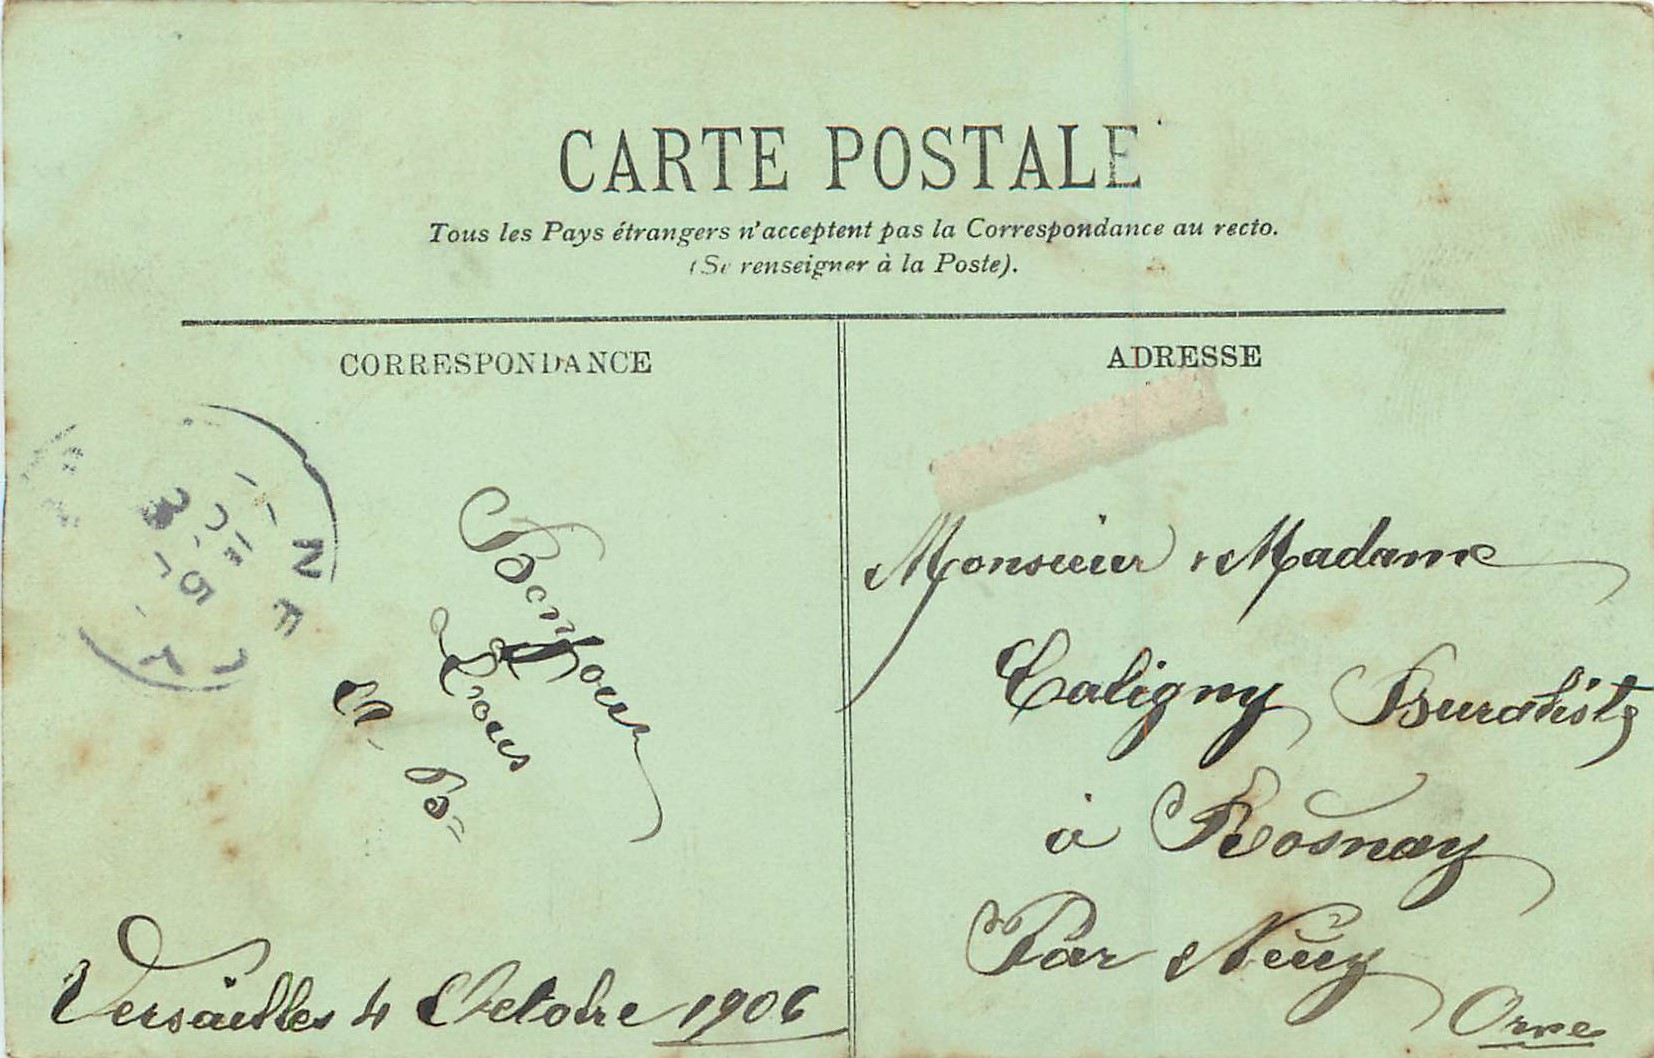 CARTE POSTALE
Tous les Pays étrangers n'acceptent pas la Correspondance au recto.
(Se renseigner à la Poste).
CORRESPONDANCE
Bonjour
à Tous
B
Versailles 4 Octobre 1906
ADRESSE
Monsieur & Madame
Caligny Buraliste
à Rosnay
Par Neuy
Orne
5
ORNE